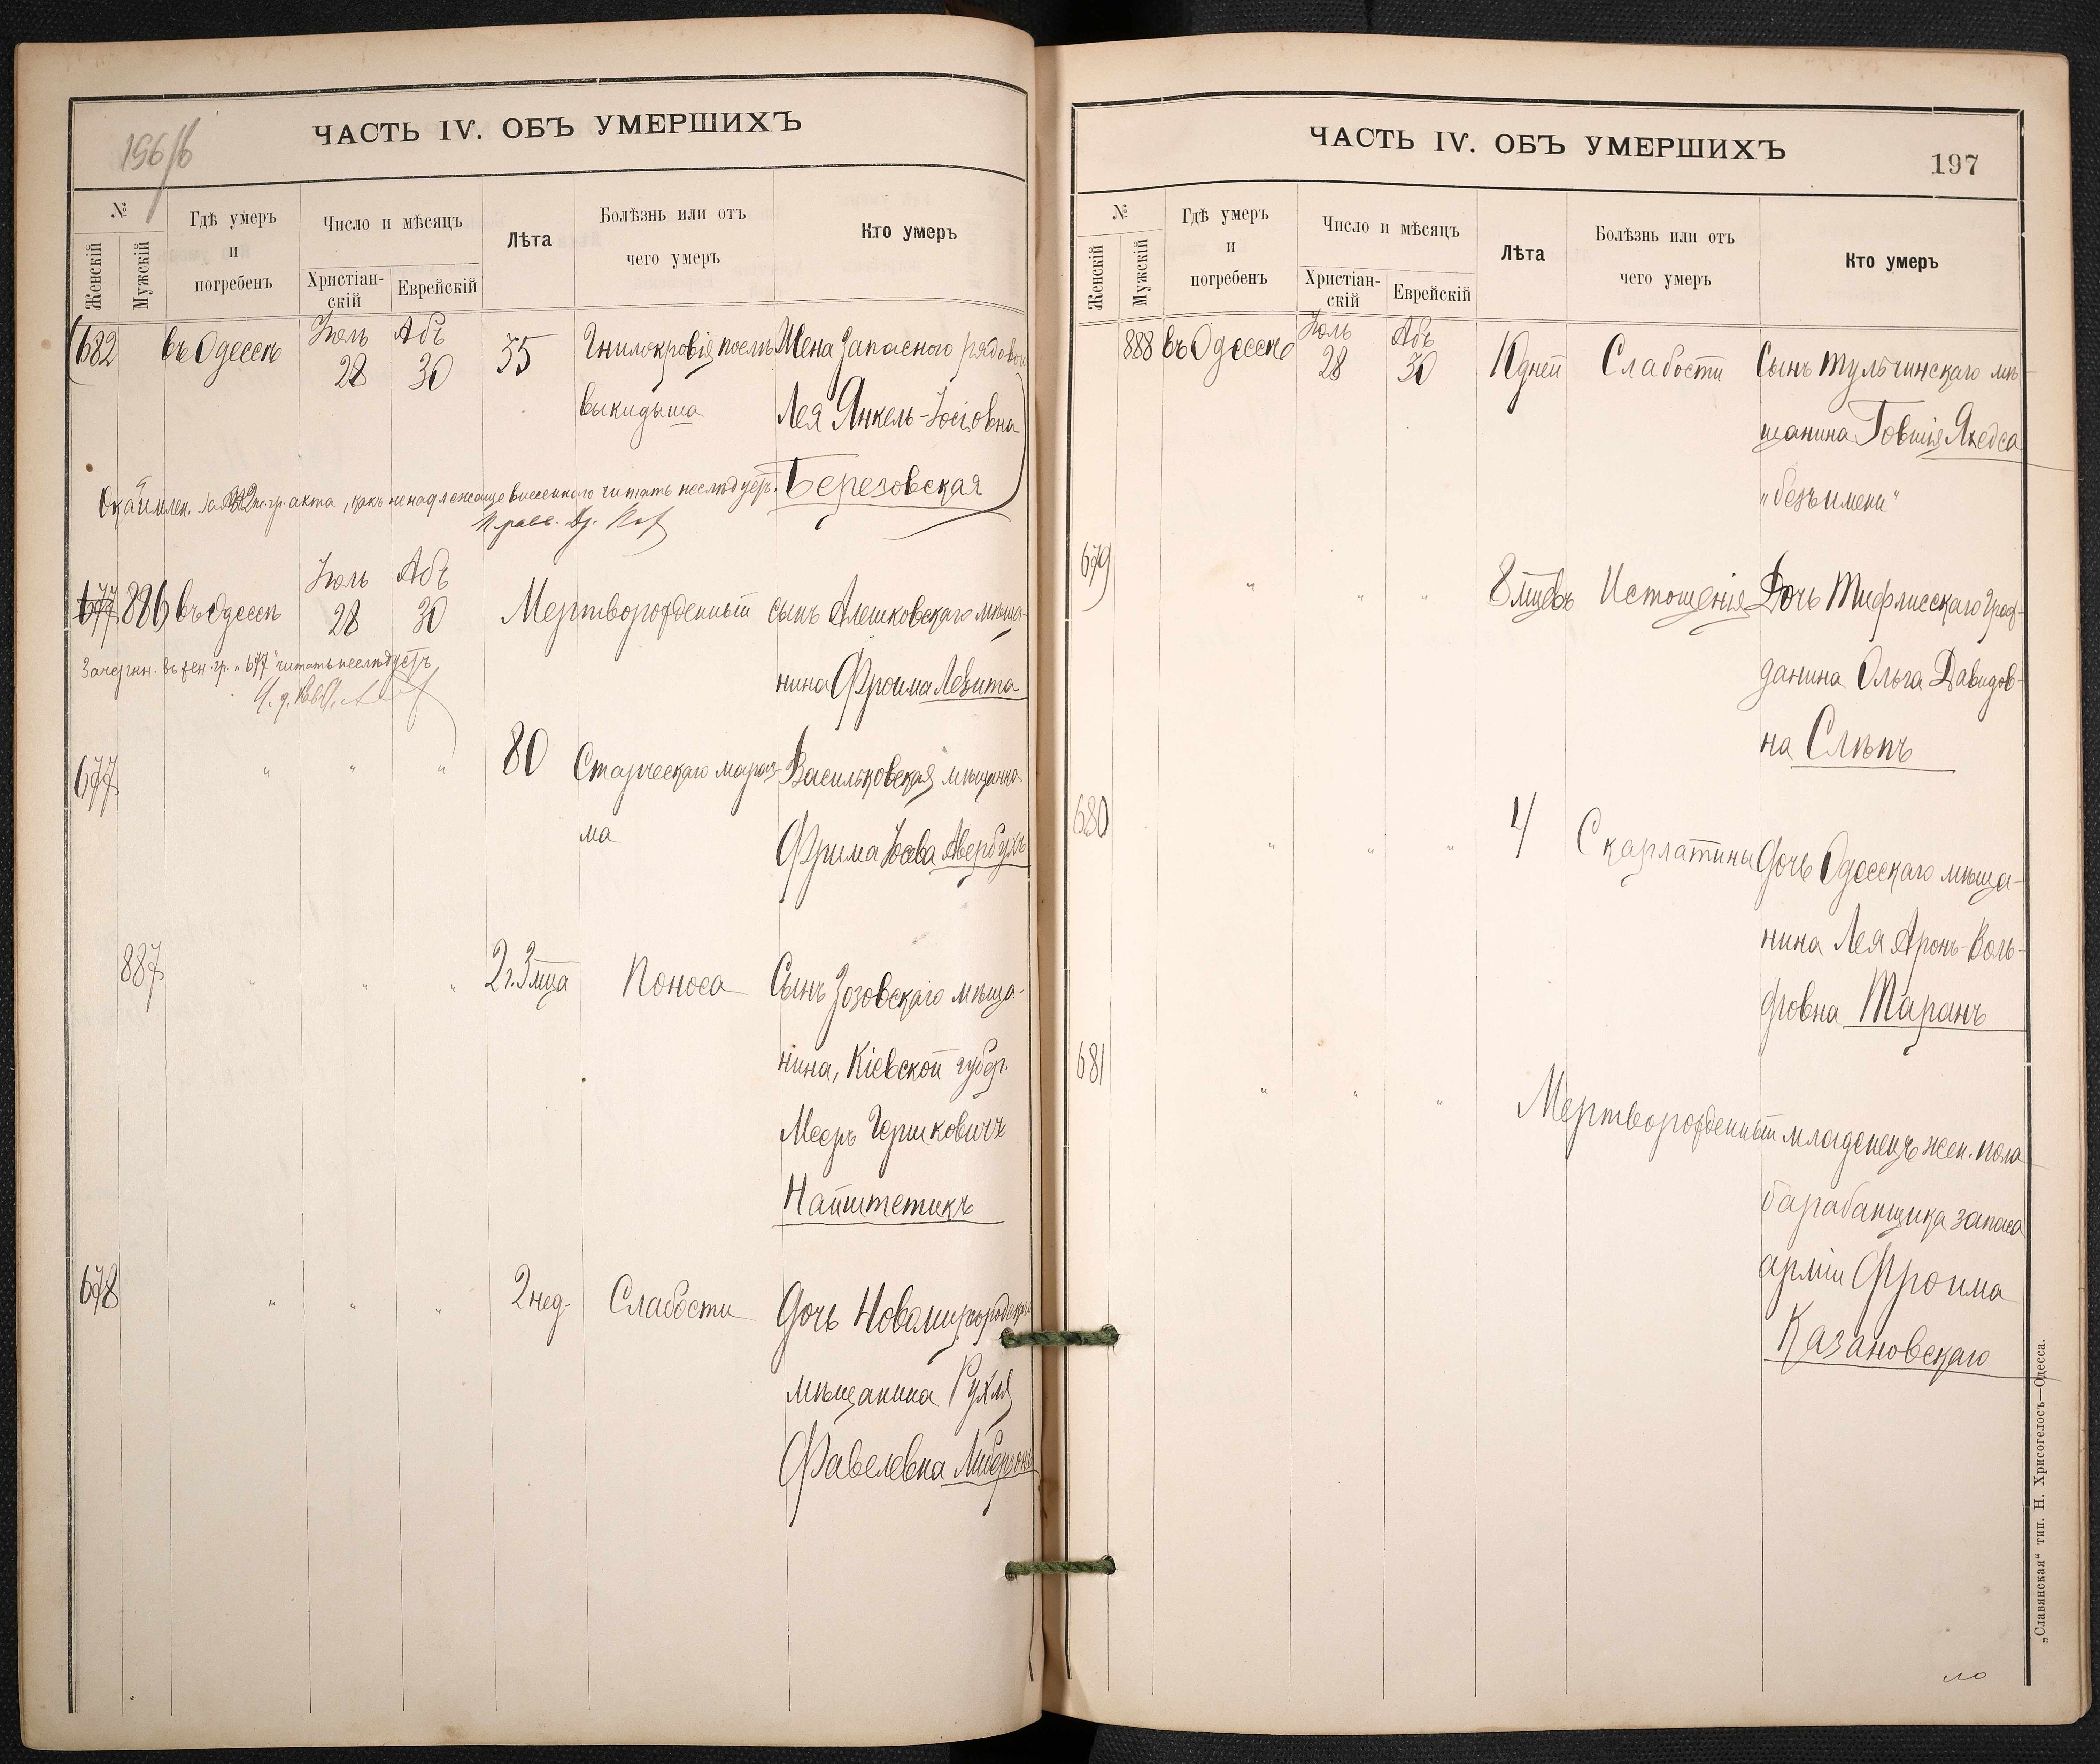 196/б
ЧАСТЬ IV. ОБЪ УМЕРШИХЪ
№
Женскій
Мужскій
Гдѣ умеръ
и
погребенъ
Число и мѣсяцъ
Христіан-
скій
Еврейскій
Лѣта
Болѣзнь или отъ
чего умеръ
Кто умеръ
682 въ Одессѣ Іюль 28 Абъ 30 35 Гнилокровія послѣ Жена Запасного рядового
выкидыша Лея Янкель-Іосіовна
Березовская
Окаймлен. акта, какъ ненадлежаще внесеннаго читать неслѣдуетъ.
677 886 въ Одессѣ Іюль 28 Абъ 30 Мертворожденный сынъ Алешковскаго мѣща-
нина Фроима Левита
Зачеркн. въ жен. гр. „677" читать неслѣдуетъ
677 " " " 80 Старческаго мараз- Васильковская мѣщанка
ма Фрима Авербухъ
887 " " " 2 г. 3 мца Поноса Сынъ Зозовскаго мѣща-
нина, Кіевской губер.
Мееръ Гершковичъ
Найштетикъ
678 " " " 2 нед. Слабости Дочь Новомиргородскаго
мѣщанина Рухля
Фавелевна Либерзонъ
ЧАСТЬ IV. ОБЪ УМЕРШИХЪ
197
№
Женскій
Мужскій
Гдѣ умеръ
и
погребенъ
Число и мѣсяцъ
Христіан-
скій
Еврейскій
Лѣта
Болѣзнь или отъ
чего умеръ
Кто умеръ
888 въ Одессѣ Іюль 28 Абъ 30 10 дней Слабости Сынъ Тульчинскаго мѣ-
щанина Говшія Яхедса
„безъ имени"
679 " " " 8 мцевъ Истощенія Дочь Тифлисскаго Граж-
данина Ольга Давидов-
на Слѣпъ
680 " " " 4 Скарлатины Дочь Одесскаго мѣща-
нина Лея Аронъ-Воль-
фовна Таранъ
681 " " " Мертворожденный младенецъ жен. пола
барабанщика запаса
арміи Фроима
Казановскаго
„Славянская" тип. Н. Хрисогелосъ—Одесса.